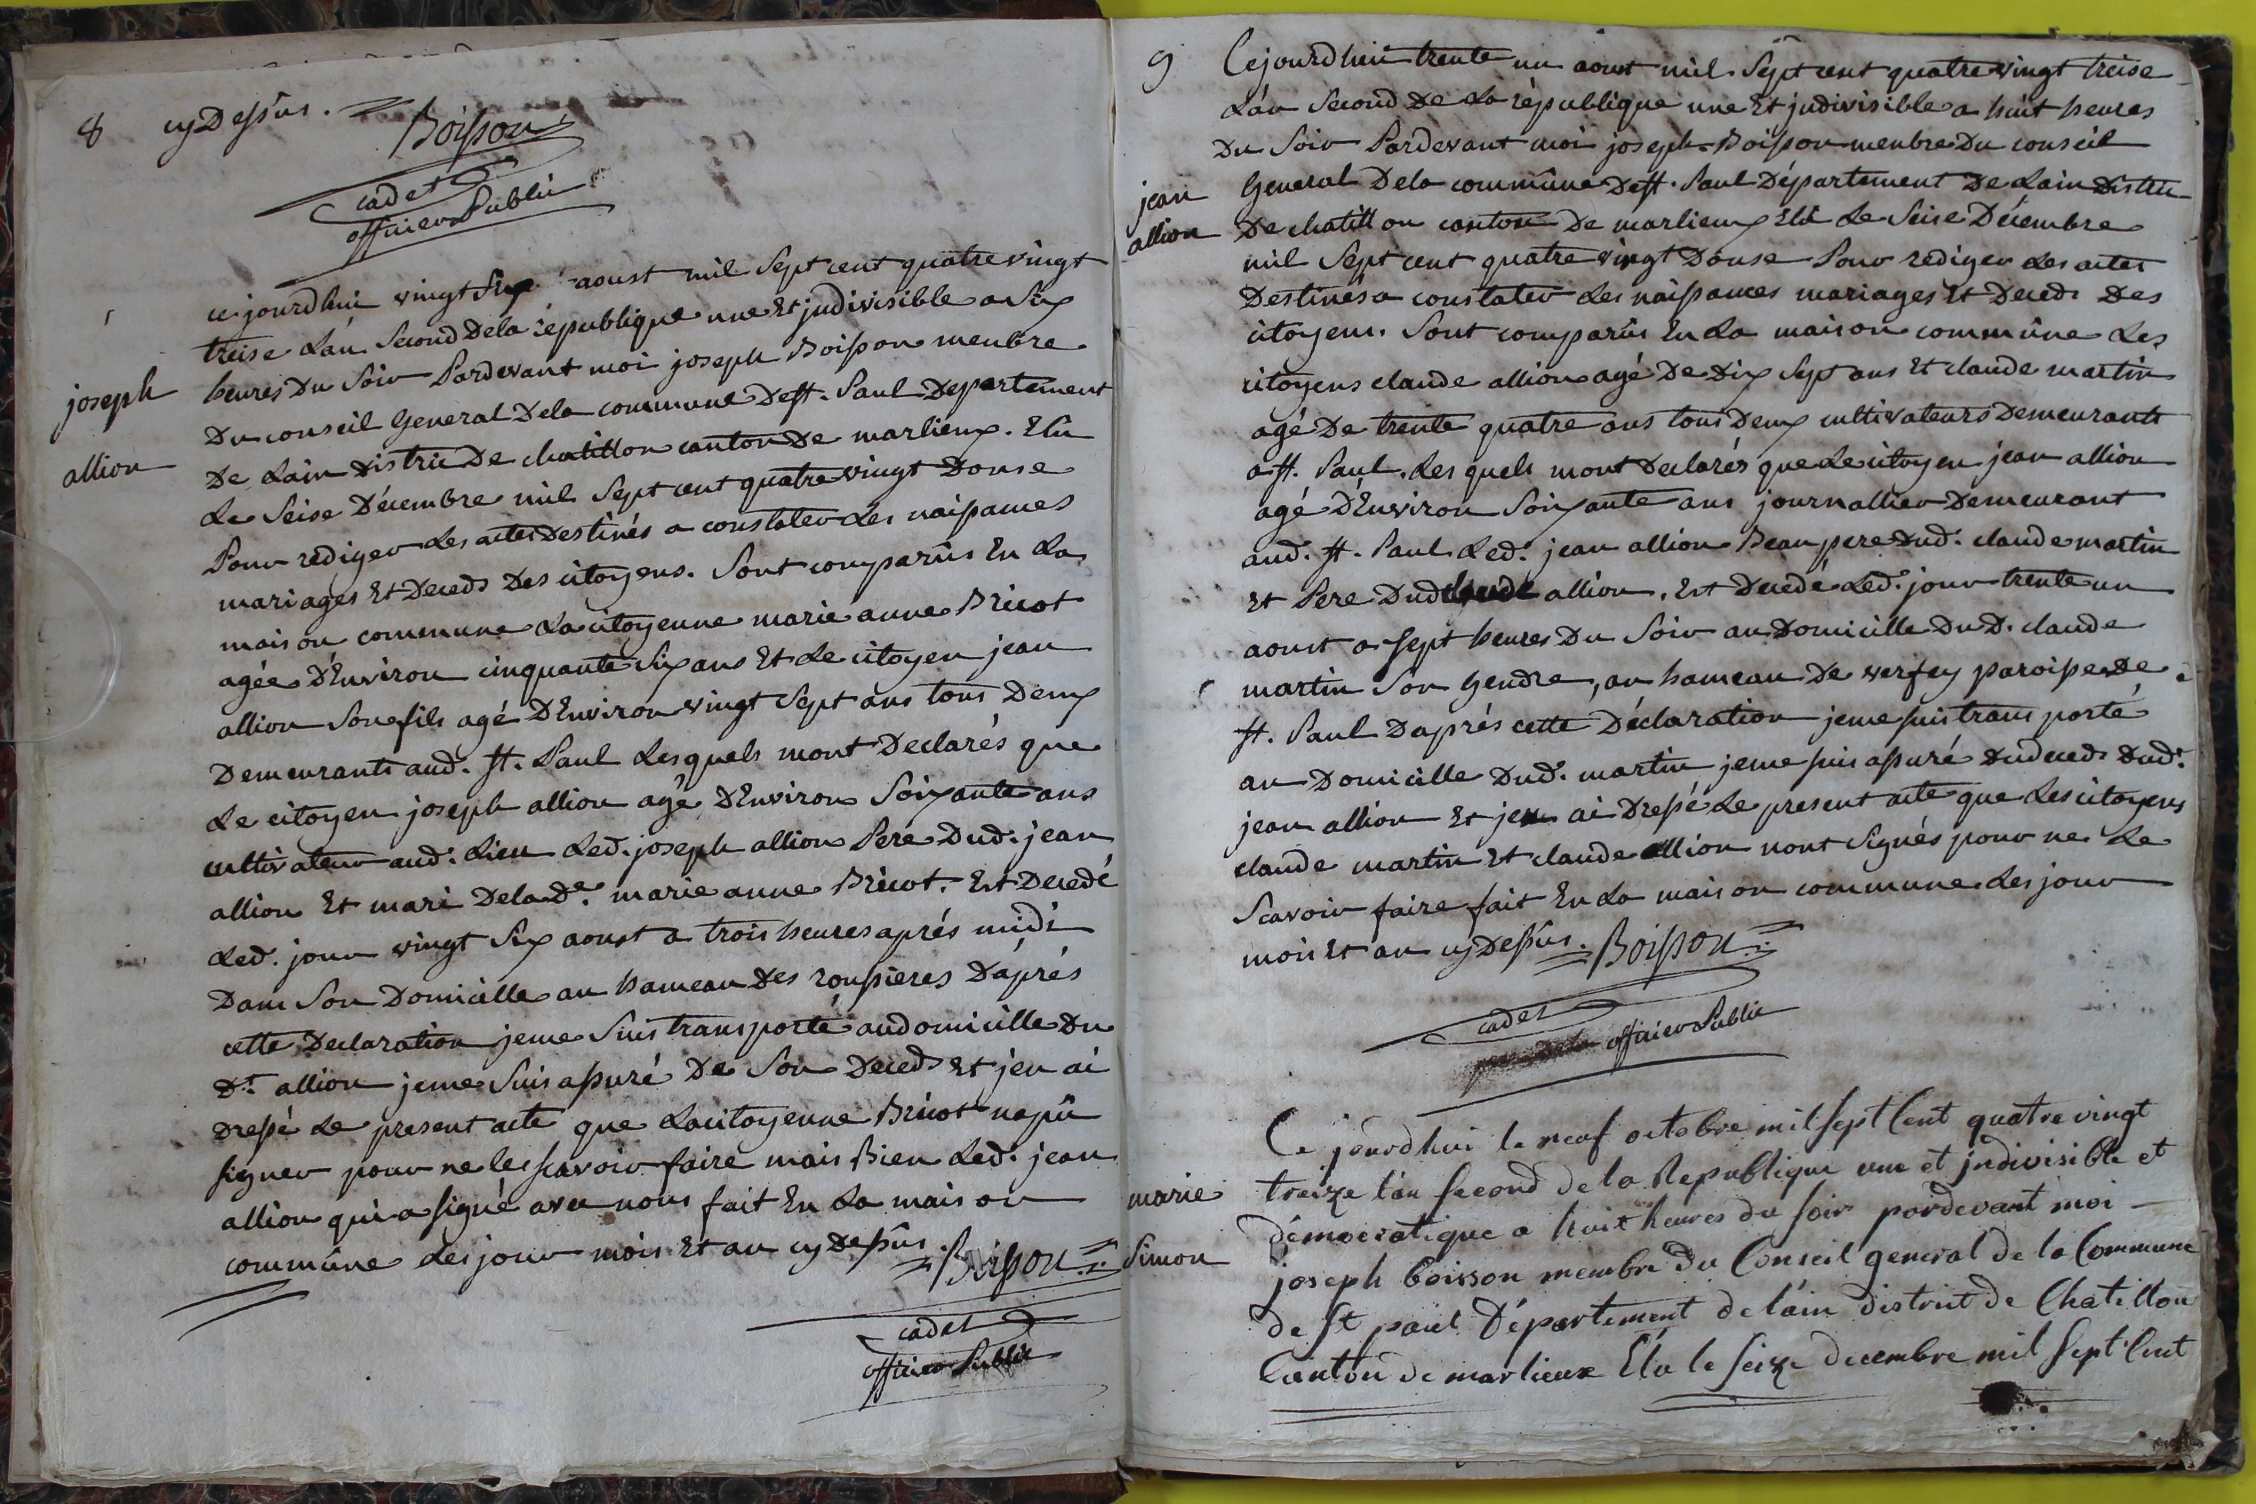 8
cy Dessus.
Boisson
cadet
officier Public
ce jourdhui vingt Six aoust mil Sept cent quatre vingt
treise L'an Second De la république une Et jndivisible a Six
heures Du Soir Pardevant moi joseph Boisson menbre
joseph
allion
Du conseil General De la commune De st. Paul Departement
De Lain District De chatillon canton De marlieux. Elu
Le Seise Décembre mil Sept cent quatre vingt Douse
Pour rediger Les actes Destinés a constater Les naissances
mariages Et Deceds Des citoyens. Sont comparûs En La
maison commune La citoyenne marie anne Bricot
agée D'Environ cinquante Six ans Et Le citoyen jean
allion Son fils agé D'Environ vingt Sept ans tous Deux
Demeurants aud. st. Paul Lesquels mont Declarés que
Le citoyen joseph allion agé D'Environ Soixante ans
cultivateur aud. Lieu Led. joseph allion Pere Dud. jean
allion Et mari De la De. marie anne Bricot. Est Decedé
Led. jour vingt Six aoust a trois heures aprés midi
Dans Son Domicille au hameau Des roussieres D'aprés
cette Declaration je me Suis transporté au domicille Du
Dt. allion je me Suis assuré De Son Deceds Et j'en ai
Dressé Le present acte que La citoyenne Bricot na pû
signer pour ne les scavoir faire mais Bien Led. jean
allion qui a signé avec nous fait En La maison
commûne Les jour mois Et an cy Dessûs.
Boisson
cadet
officier Public
9
Cejourdhui trente un aoust mil Sept cent quatre vingt treise
L'an Second De La république une Et jndivisible a huit heures
Du Soir Pardevant moi joseph Boisson menbre Du conseil
jean
allion
General De la commûne De st. Paul Département De Lain Distric
De chatillon canton De marlieux Elû Le Seise Décembre
mil Sept cent quatre vingt Douse Pour rediger Les actes
Destinés a constater Les naissances mariages Et Deceds Des
citoyens. Sont comparûs En La maison commûne Les
citoyens claude allion agé De Dix Sept ans Et claude martin
agé De trente quatre ans tous Deux cultivateurs Demeurants
a st. Paul. Les quels mont Declarés que Le citoyen jean allion
agé D'Environ Soixante ans journallier Demeurant
aud. st. Paul Led. jean allion Beaupere Dud. claude martin
Et Pere Dud claude allion. Est Decedé Led. jour trente un
aoust a Sept heures Du Soir au Domicille Du D. claude
martin Son Gendre, au hameau De verfey paroisse De
st. Paul D'aprés cette Déclaration je me suis transporté
au Domicille Dud. martin je me suis assuré du deceds Dud.
jean allion Et jen ai Dressé Le present acte que Les citoyens
claude martin Et claude allion nont Signés pour ne Le
Scavoir faire fait En La maison commune Les jour
mois Et an cy Dessûs. Boisson
cadet
officier Public
Ce jourdhui le neuf octobre mil sept Cent quatre vingt
treize l'an second de la Republique une et jndivisible et
marie
Simon
démocratique a huit heures du soir pardevant moi
joseph boisson membre du Conseil general de la Commune
de st paul Département de l'ain district de Chatillon
Canton de marlieux Elu le seize decembre mil sept Cent